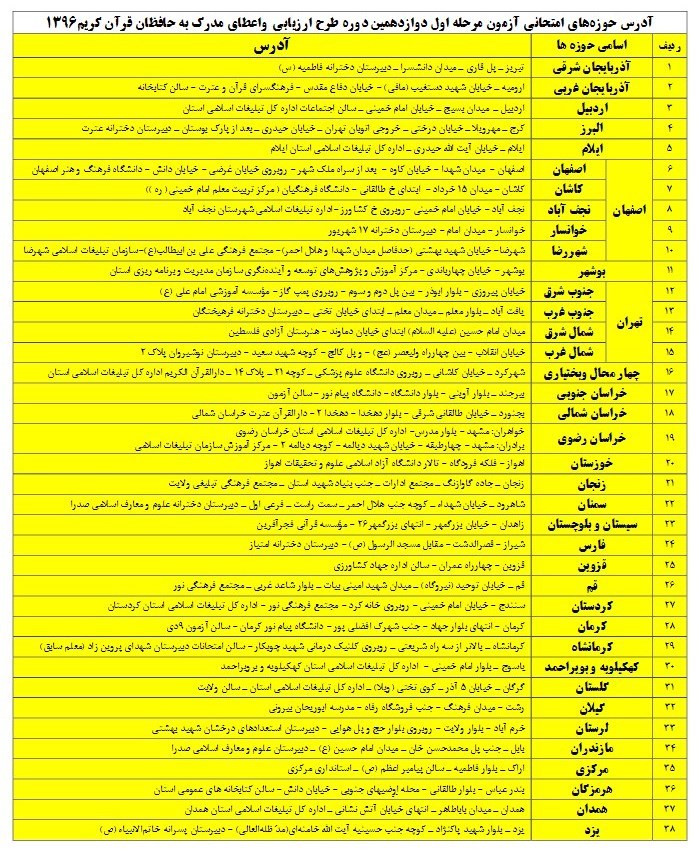 آدرس حوزه‌های امتحانی آزمون مرحله اول دوازدهمین دوره طرح ارزیابی واعطای مدرک به حافظان قرآن کریم۱۳۹۶
ردیف اسامی حوزه ها آدرس
۱ آذربایجان شرقی تبریز ـ پل قاری ـ میدان دانشسرا ـ دبیرستان دخترانه فاطمیه (س)
۲ آذربایجان غربی ارومیه ـ خیابان شهید دستغیب (مافی) - خیابان دفاع مقدس - فرهنگسرای قرآن و عترت - سالن کتابخانه
۳ اردبیل اردبیل - میدان بسیج - خیابان امام خمینی ـ سالن اجتماعات اداره کل تبلیغات اسلامی استان
۴ البرز کرج - مهرویلا ـ خیابان درختی ـ خروجی اتوبان تهران ـ خیابان حیدری ـ بعد از پارک بوستان ـ دبیرستان دخترانه عترت
۵ ایلام ایلام ـ خیابان آیت الله حیدری ـ اداره کل تبلیغات اسلامی استان ایلام
۶ اصفهان اصفهان اصفهان - میدان شهدا - خیابان کاوه - بعد از سراه ملک شهر - روبروی خیابان غرضی - خیابان دانش - دانشگاه فرهنگ و هنر اصفهان
۷ کاشان کاشان - میدان ۱۵ خرداد - ابتدای خ طالقانی - دانشگاه فرهنگیان ( مرکز تربیت معلم امام خمینی ( ره ))
۸ نجف آباد نجف آباد - خیابان امام خمینی - روبروی خ کشاورز - اداره تبلیغات اسلامی شهرستان نجف آباد
۹ خوانسار خوانسار - میدان امام - دبیرستان دخترانه ۱۷ شهریور
۱۰ شهررضا شهرضا - خیابان شهید بهشتی (حدفاصل میدان شهدا و هلال احمر) - مجتمع فرهنگی علی بن ابیطالب(ع) - سازمان تبلیغات اسلامی شهرضا
۱۱ بوشهر بوشهر - خیابان چهارباندی - مرکز آموزش و پژوهش‌های توسعه و آینده‌نگری سازمان مدیریت و برنامه ریزی استان
۱۲ تهران جنوب شرق خیابان پیروزی - بلوار ابوذر - بین پل دوم و سوم - روبروی پمپ گاز - مؤسسه آموزشی امام علی (ع)
۱۳ جنوب غرب یافت آباد ـ بلوار معلم ـ میدان معلم ـ ابتدای خیابان تختی ـ دبیرستان دخترانه فرهیختگان
۱۴ شمال شرق میدان امام حسین (علیه السلام) ابتدای خیابان دماوند - هنرستان آزادی فلسطین
۱۵ شمال غرب خیابان انقلاب - بین چهارراه ولیعصر (عج) - و پل کالج - کوچه شهید سعید - دبیرستان نوشیروان پلاک ۲
۱۶ چهار محال وبختیاری شهرکرد ـ خیابان کاشانی ـ روبروی دانشگاه علوم پزشکی ـ کوچه ۲۱ ـ پلاک ۱۴ ـ دارالقرآن الکریم اداره کل تبلیغات اسلامی استان
۱۷ خراسان جنوبی بیرجند ـ بلوار آوینی - بلوار دانشگاه - دانشگاه پیام نور - سالن آزمون
۱۸ خراسان شمالی بجنورد ـ خیابان طالقانی شرقی - بلوار دهخدا - دهخدا ۲ - دارالقرآن عترت خراسان شمالی
۱۹ خراسان رضوی خواهران: مشهد - بلوار مدرس - اداره کل تبلیغات اسلامی استان خراسان رضوی
برادران: مشهد - چهارطبقه - خیابان شهید دیالمه - کوچه دیالمه ۲ - مرکز آموزش سازمان تبلیغات اسلامی
۲۰ خوزستان اهواز - فلکه فرودگاه - تالار دانشگاه آزاد اسلامی علوم و تحقیقات اهواز
۲۱ زنجان زنجان - جاده گاوازنگ - مجتمع ادارات - جنب بنیاد شهید استان - مجتمع فرهنگی تبلیغی ولایت
۲۲ سمنان شاهرود - خیابان شهداء - کوچه جنب هلال احمر - سمت راست - فرعی اول - دبیرستان دخترانه علوم و معارف اسلامی صدرا
۲۳ سیستان و بلوچستان زاهدان - خیابان بزرگمهر - انتهای بزرگمهر۲۶ - مؤسسه قرآنی فجرآفرین
۲۴ فارس شیراز - قصرالدشت - مقابل مسجد الرسول (ص) - دبیرستان دخترانه امتیاز
۲۵ قزوین قزوین - چهارراه عمران - سالن اداره جهاد کشاورزی
۲۶ قم قم ـ خیابان توحید (نیروگاه) ـ میدان شهید امینی بیات ـ بلوار شاهد غربی ـ مجتمع فرهنگی نور
۲۷ کردستان سنندج - خیابان امام خمینی - روبروی خانه کرد - مجتمع فرهنگی نور - اداره کل تبلیغات اسلامی استان کردستان
۲۸ کرمان کرمان - انتهای بلوار جهاد - جنب شهرک افضلی پور - دانشگاه پیام نور کرمان - سالن آزمون ۹دی
۲۹ کرمانشاه کرمانشاه - بالاتر از سه راه شریعتی - روبروی کلنیک درمانی شهید چوبکار - سالن امتحانات دبیرستان شهدای پروین زاد (معلم سابق)
۳۰ کهکیلویه و بویراحمد یاسوج ـ بلوار امام خمینی - اداره کل تبلیغات اسلامی استان کهکیلویه و بویراحمد
۳۱ گلستان گرگان ـ خیابان ۵ آذر ـ کوی تختی (ویلا) ـ اداره کل تبلیغات اسلامی استان ـ سالن ولایت
۳۲ گیلان رشت - میدان فرهنگ - جنب فروشگاه رفاه - مدرسه ابوریحان بیرونی
۳۳ لرستان خرم آباد - بلوار ولایت - روبروی بلوار حج و پل هوایی - دبیرستان استعدادهای درخشان شهید بهشتی
۳۴ مازندران بابل - جنب پل محمدحسن خان ـ میدان امام حسین (ع) ـ دبیرستان علوم و معارف اسلامی صدرا
۳۵ مرکزی اراک ـ بلوار فاطمیه ـ سالن پیامبر اعظم (ص) ـ استانداری مرکزی
۳۶ هرمزگان بندر عباس - بلوار طالقانی - محله اوضیهای جنوبی - خیابان دانش - سالن کتابخانه های عمومی استان
۳۷ همدان همدان ـ میدان باباطاهر - انتهای خیابان آتش نشانی ـ اداره کل تبلیغات اسلامی استان همدان
۳۸ یزد یزد ـ بلوار شهید پاکنژاد ـ کوچه جنب حسینیه آیت الله خامنه‌ای(مدّ ظله‌العالی) - دبیرستان پسرانه خاتم‌الانبیاء (ص)